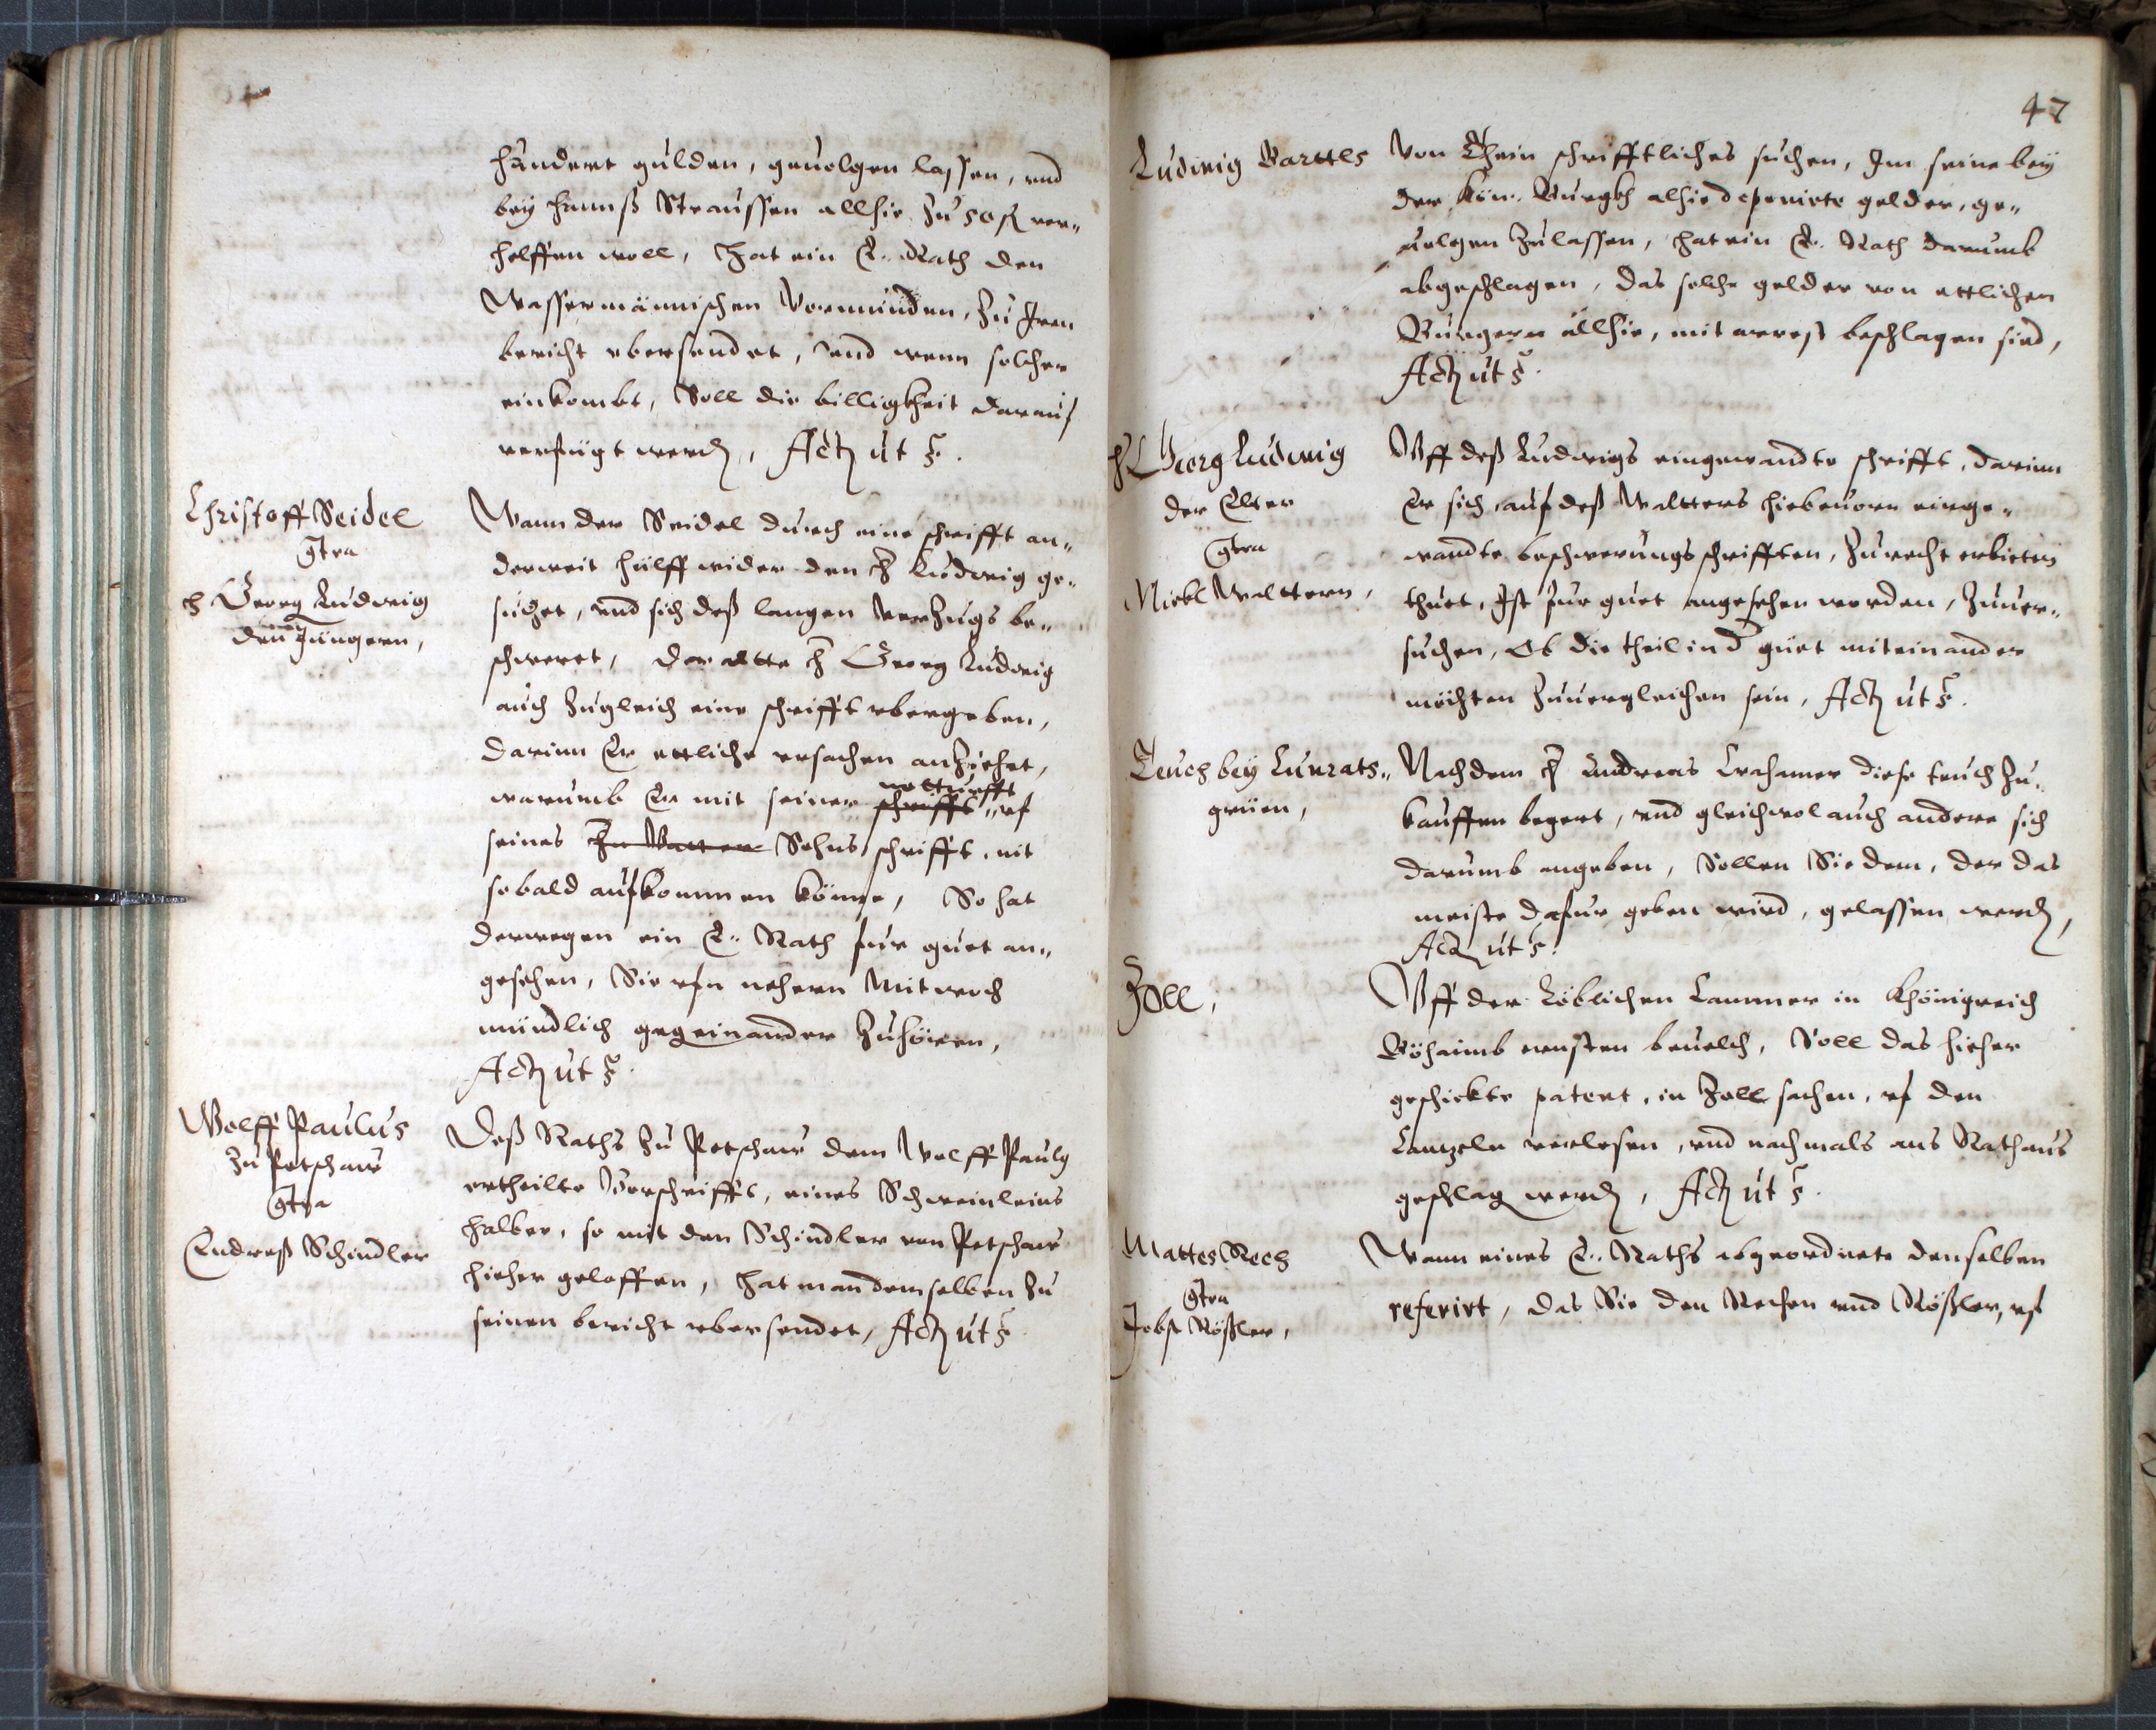 hundert gulden, geuolgen lassen, vnd
bey Hannß Straussen allhie zu 50 fl ver„
helffen woll, Hat ein E. Rath den
Wassermännischen Vormunden, zu Iren
bericht vbersendet, Vnd wenn solcher
einkombt, Soll die billigkheit darauf
verfügt werden, Actum ut s.
Christoff Seidel
contra
H Georg Ludwig
den Jüngern,
Wann der Seidel durch eine schrifft an„
derweit hülff wider den H Ludwig ge„
suchet, vnd sich deß langen verzugs be„
schweret, der altte H Georg Ludwig
auch zugleich eine schrifft vbergeben,
darinn Er ettliche vrsachen anziehet,
notturfft
warumb Er mit seiner schrifft, vf
seines Sohns schrifft, nit
sobald aufkommen könne, So hat
derwegen ein E. Rath fur guet an„
gesehen, Sie vfn nehern Mitwoch
mündlich gegeinander zuhören,
Actum ut s.
Wolff Paulus
zu Petschaw
contra
Endreß Schindler
Deß Raths zu Petschaw dem Wolff Pauly
ertheilte Vorschrifft, eines Schweinleins
halber, so mit den Schindler von Petschaw
hieher geloffen, Hat man demselben zu
seinen bericht vbersendet, Actum ut s.
47
Ludwig Barttls
Von Thein schrifftliches suchen, Im seine bey
der Kön. Burgkh alhie deponirte gelder, ge„
uolgen zulassen, Hat ein E. Rath darumb
abgeschlagen, das solche gelder von ettlichen
Burgern allhie, mit arrest beschlagen sind,
Actum ut s.
H Georg Ludwig
der Elter
contra
Nickl Walttern,
Vff deß Ludwigs eingewandte schrifft, darinn
Er sich auf deß Waltters hiebeuorn einge„
wandte beschwerungs schrifften, zu recht erbieten
thuet, Ist fur guet angesehen worden, zuuer„
suchen, Ob die theil in d guet miteinander
möchten zuuergleichen sein, Actum ut s.
Teuch bey Cunrats„
grüen,
Nachdem H Andreas Crahamer diese teuch zu„
kauffen begert, vnd gleichwol auch andere sich
darumb angeben, Sollen Sie dem, der das
meiste dafur geben wird, gelassen werden,
Actum ut s.
Zoll,
Vff der Löblichen Cammer in Khönigreich
Böhaimb ernsten beuelch, Soll das hieher
geschickte patent, in Zoll sachen, vf den
Cantzeln verlesen, vnd nachmals ans Rathaus
geschlag werden, Actum ut s.
Mattes Rech
contra
Jobst Rößler,
Wann eines E. Raths abgeordnete denselben
referirt, das Sie den Rechen vnd Rößler, vf